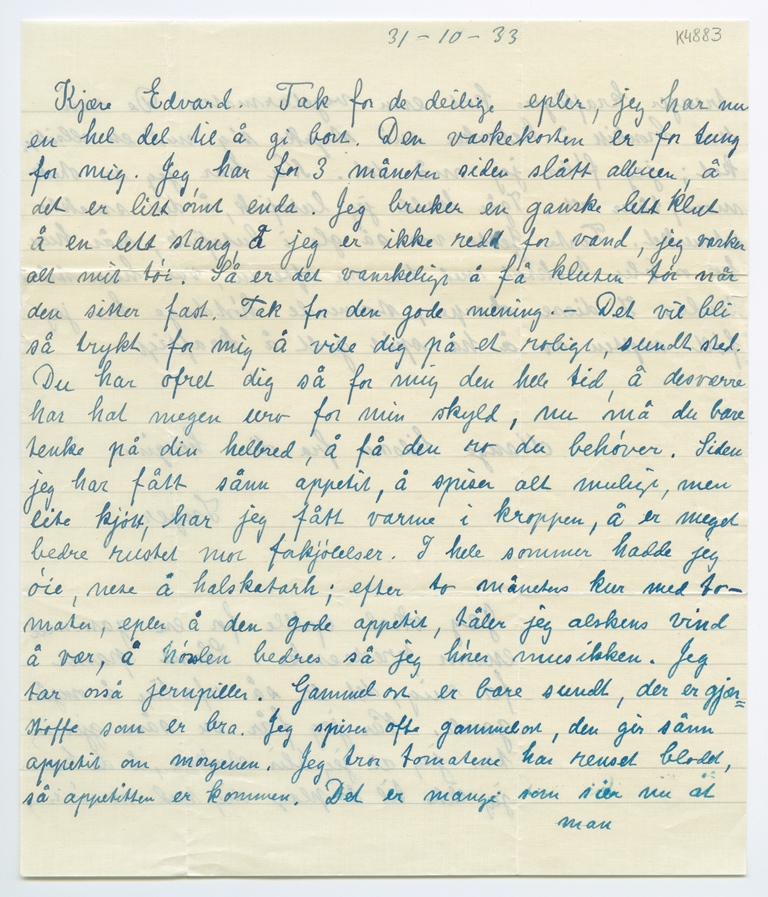 31-10-33 K4883
Kjære Edvard. Tak for de deilige epler, jeg har nu
en hel del til å gi bort. Den vaskekosten er for tung
for mig. Jeg har for 3 måneter siden slått albuen, å
det er litt ómt enda. Jeg bruker en ganske lett klut
å en lett stang, å jeg er ikke redd for vand, jeg vasker
alt mit tói. Så er det vanskeligt å få kluten tór når
den sitter fast. Tak for den gode mening. – Det vil bli
så trykt for mig å vite dig på et roligt, sundt sted.
Du har ofret dig så for mig den hele tid, å desværre
har hat megen uro for min skyld, nu må du bare
tenke på din helbred, å få den ro du behóver. Siden
jeg har fått sånn appetit, å spiser alt muligt, men
lite kjótt, har jeg fått varme i kroppen, å er meget
bedre rustet mot fokjólelser. I hele sommer hadde jeg
óie, nese å halskatarh; efter to måneters kur med to-
mater, epler å den gode appetit, tåler jeg alskens vind
å vær, å hórslen bedres så jeg hórer musikken. Jeg
tar osså jernpiller. Gammelost er bare sundt, der er gjær=
stoffe som er bra. Jeg spiser ofte gammelost, den gir sånn
appetit om morgenen. Jeg tror tomatene har renset blodet,
så appetitten er kommen. Det er mange som sier nu at
man